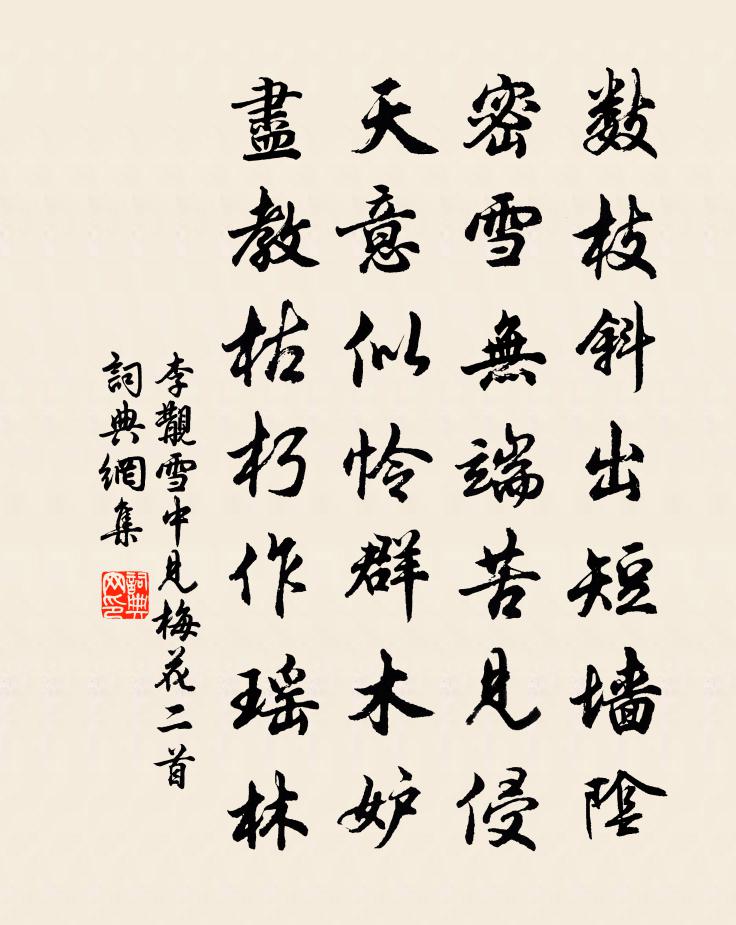 数枝斜出短墙陰
密雪無端苦見侵
天意似怜群木妒
盡教枯朽作瑶林
李觀雪中見梅花二首
詞典網集
詞典网印